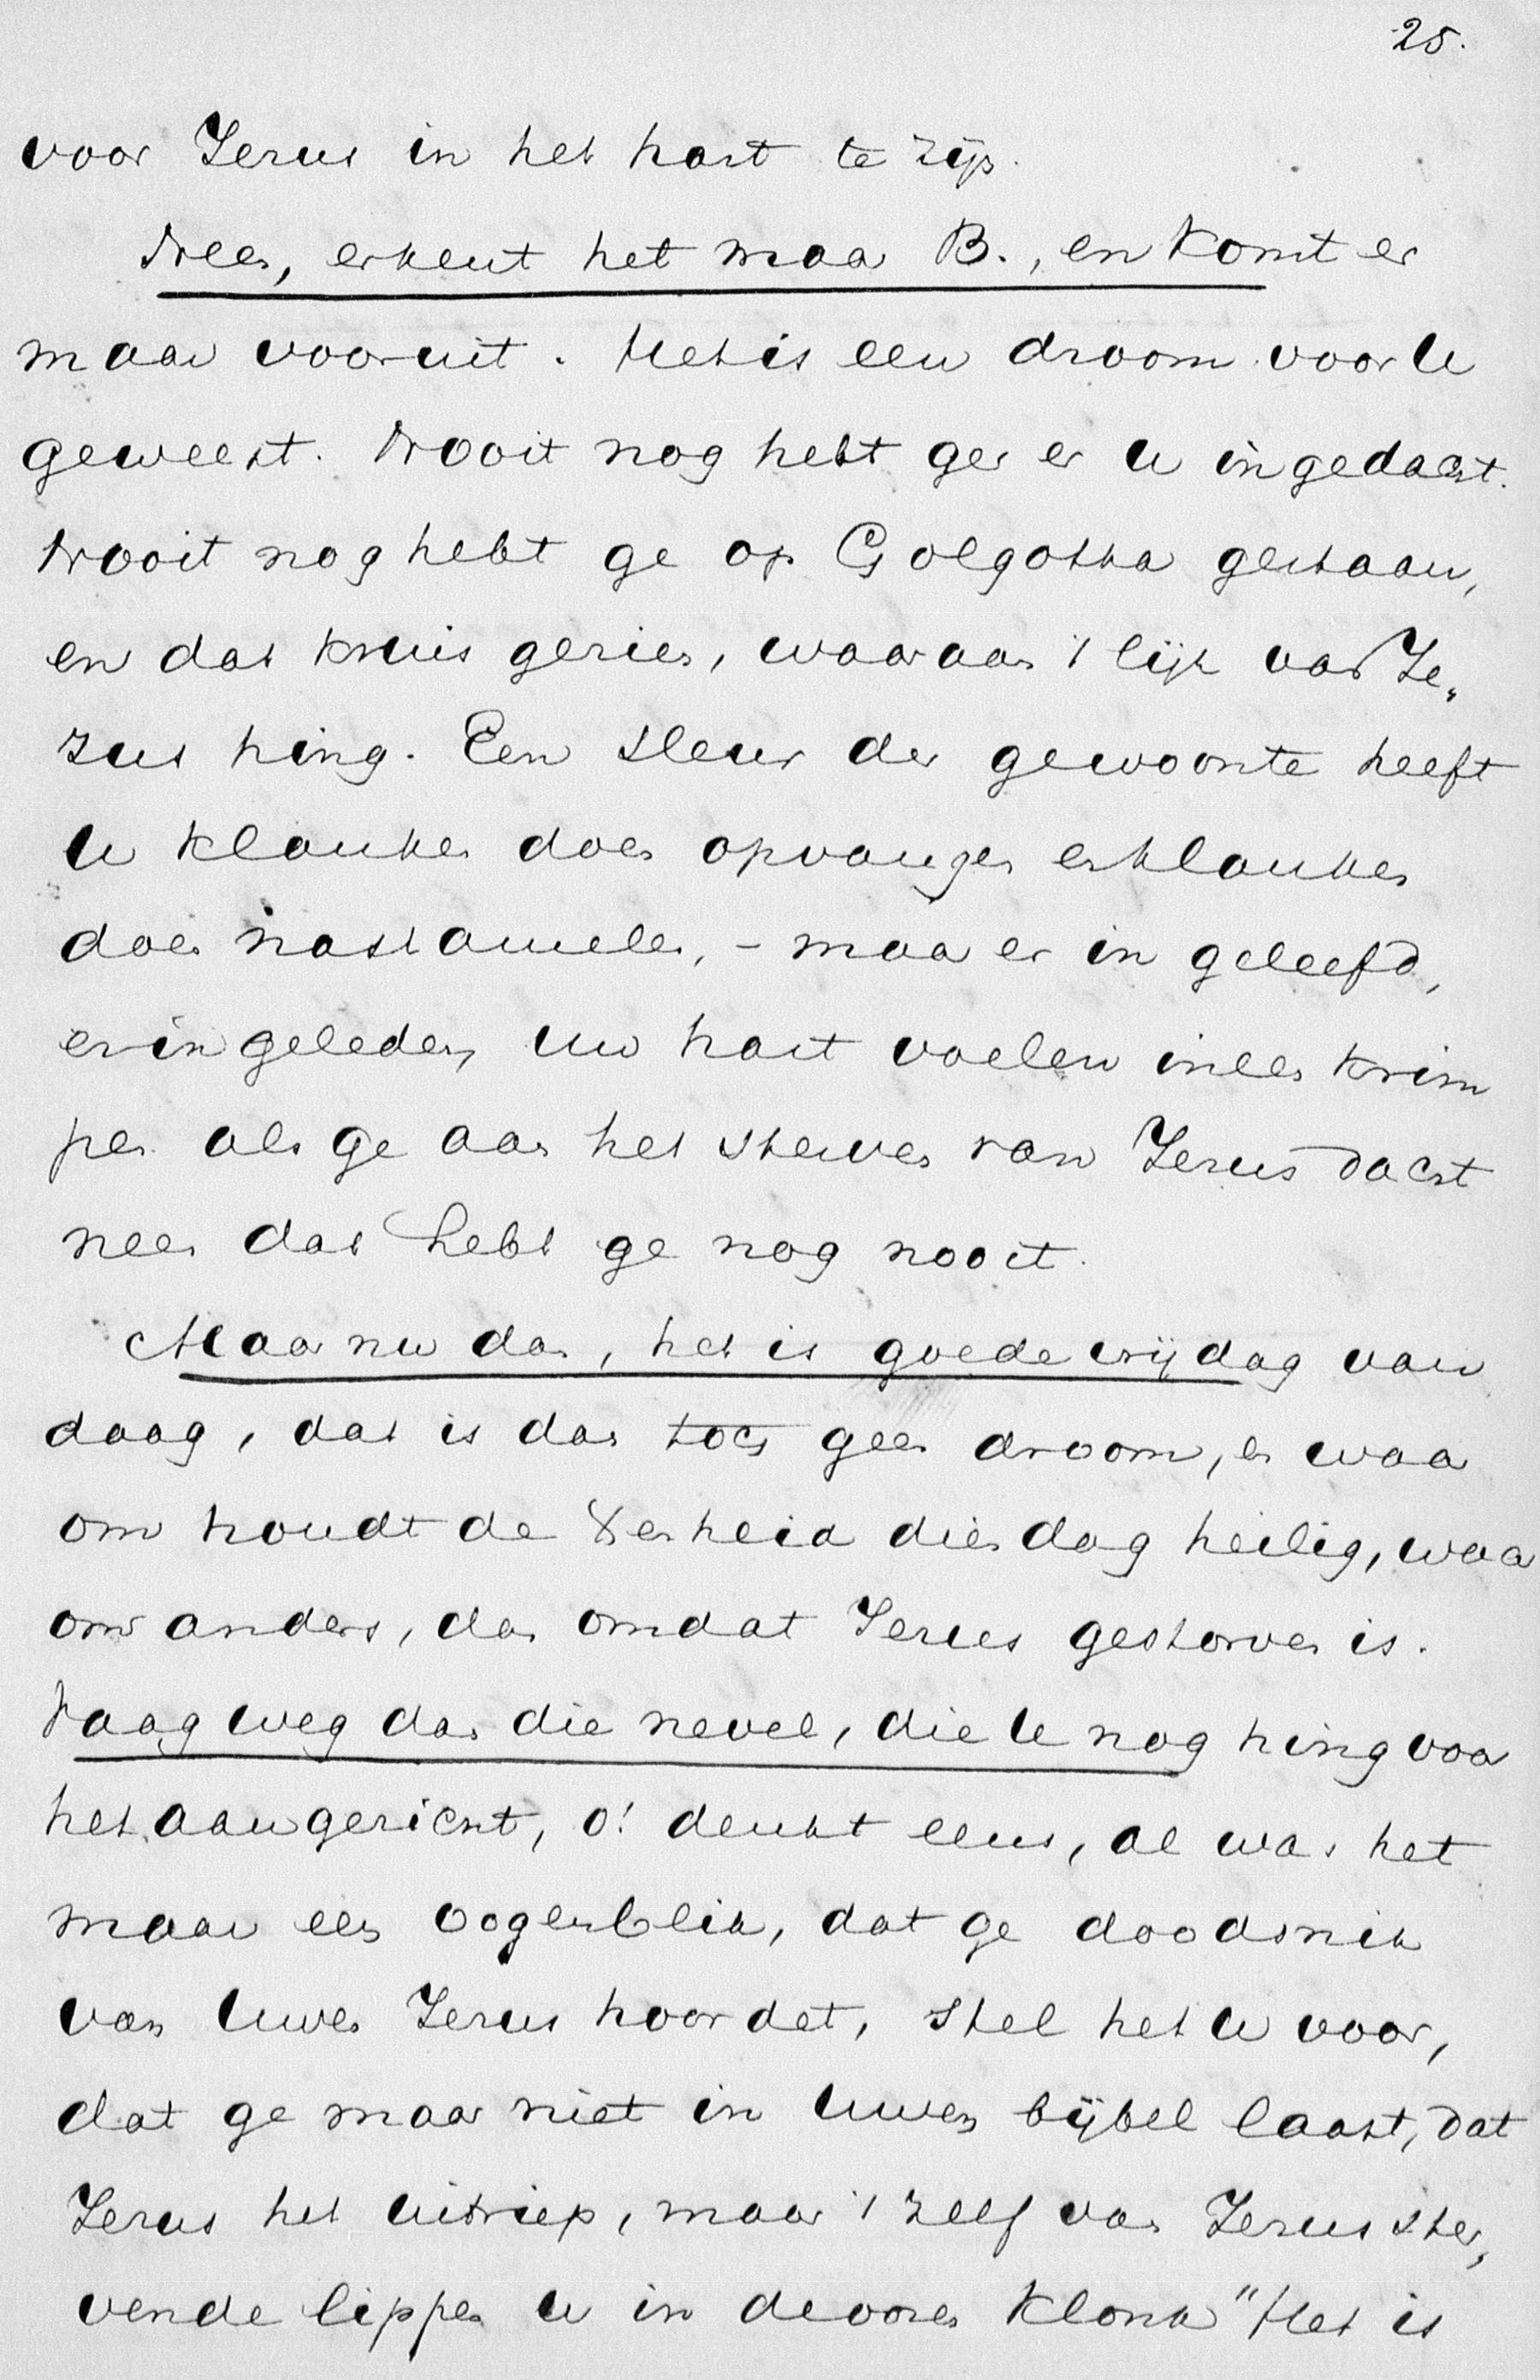 25.
voor Jezus in het hart te zijn.
Neen, erkent het maar B., en komt er
maar vooruit. Het is een droom voor U
geweest. Nooit nog hebt ge er U ingedacht.
Nooit nog hebt ge op Golgotha gestaan,
en dat kruis gezien, waaraan 't lijk van Je„
zus hing. Een sleur der gewoonte heeft
U klanken doen opvangen en klanken
doen nastamelen, – maar er in geleefd,
er in geleden, uw hart voelen ineen krim
pen als ge aan het sterven van Jezus dacht
neen dat hebt ge nog nooit.
Maar nu dan, het is goede vrijdag van
daag, dat is dan toch geen droom, en waar
om houdt de Xenheid dien dag heilig, waar
om anders, dan omdat Jezus gestorven is.
Vaag weg dan die nevel, die U nog hing voor
het aangezicht, o! denkt eens, al was het
maar een oogenblik, dat ge doodsnik
van Uwen Jezus hoordet, stel het U voor,
dat ge maar niet in Uwen bijbel laast, dat
Jezus het uitriep, maar 't zelf van Jezus ster„
vende lippen U in de ooren klonk "Het is